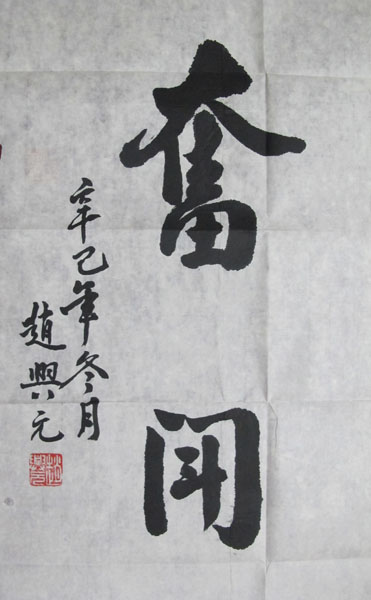 奮鬥
辛巳年冬月
趙興元